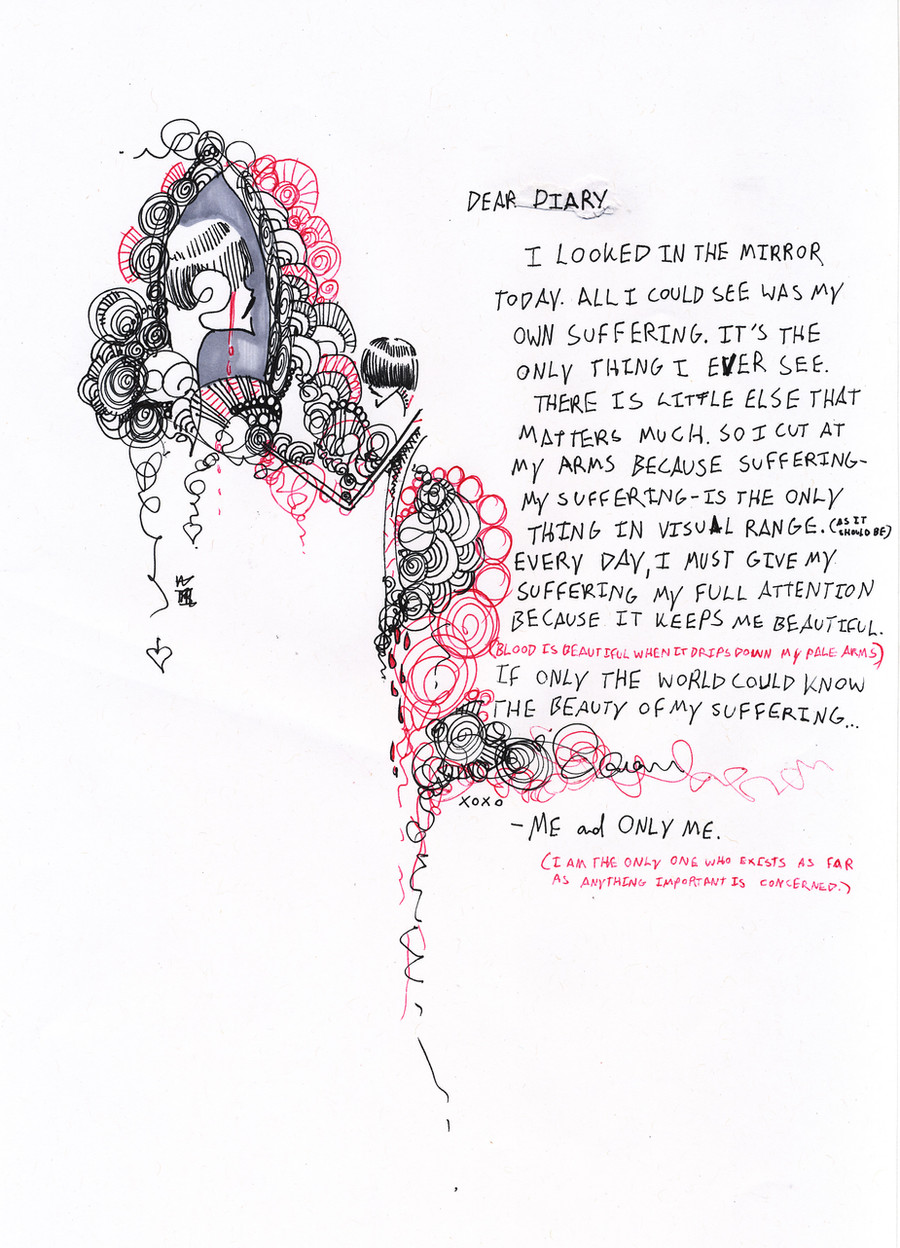 DEAR DIARY
I LOOKED IN THE MIRROR
TODAY. ALL I COULD SEE WAS MY
OWN SUFFERING. IT'S THE
ONLY THING I EVER SEE.
THERE IS LITTLE ELSE THAT
MATTERS MUCH. SO I CUT AT
MY ARMS BECAUSE SUFFERING-
MY SUFFERING-IS THE ONLY
THING IN VISUAL RANGE. (AS IT SHOULD BE)
EVERY DAY, I MUST GIVE MY
SUFFERING MY FULL ATTENTION
BECAUSE IT KEEPS ME BEAUTIFUL.
(BLOOD IS BEAUTIFUL WHEN IT DRIPS DOWN MY PALE ARMS)
IF ONLY THE WORLD COULD KNOW
THE BEAUTY OF MY SUFFERING...
XOXO
-ME and ONLY ME.
(I AM THE ONLY ONE WHO EXISTS AS FAR
AS ANYTHING IMPORTANT IS CONCERNED.)